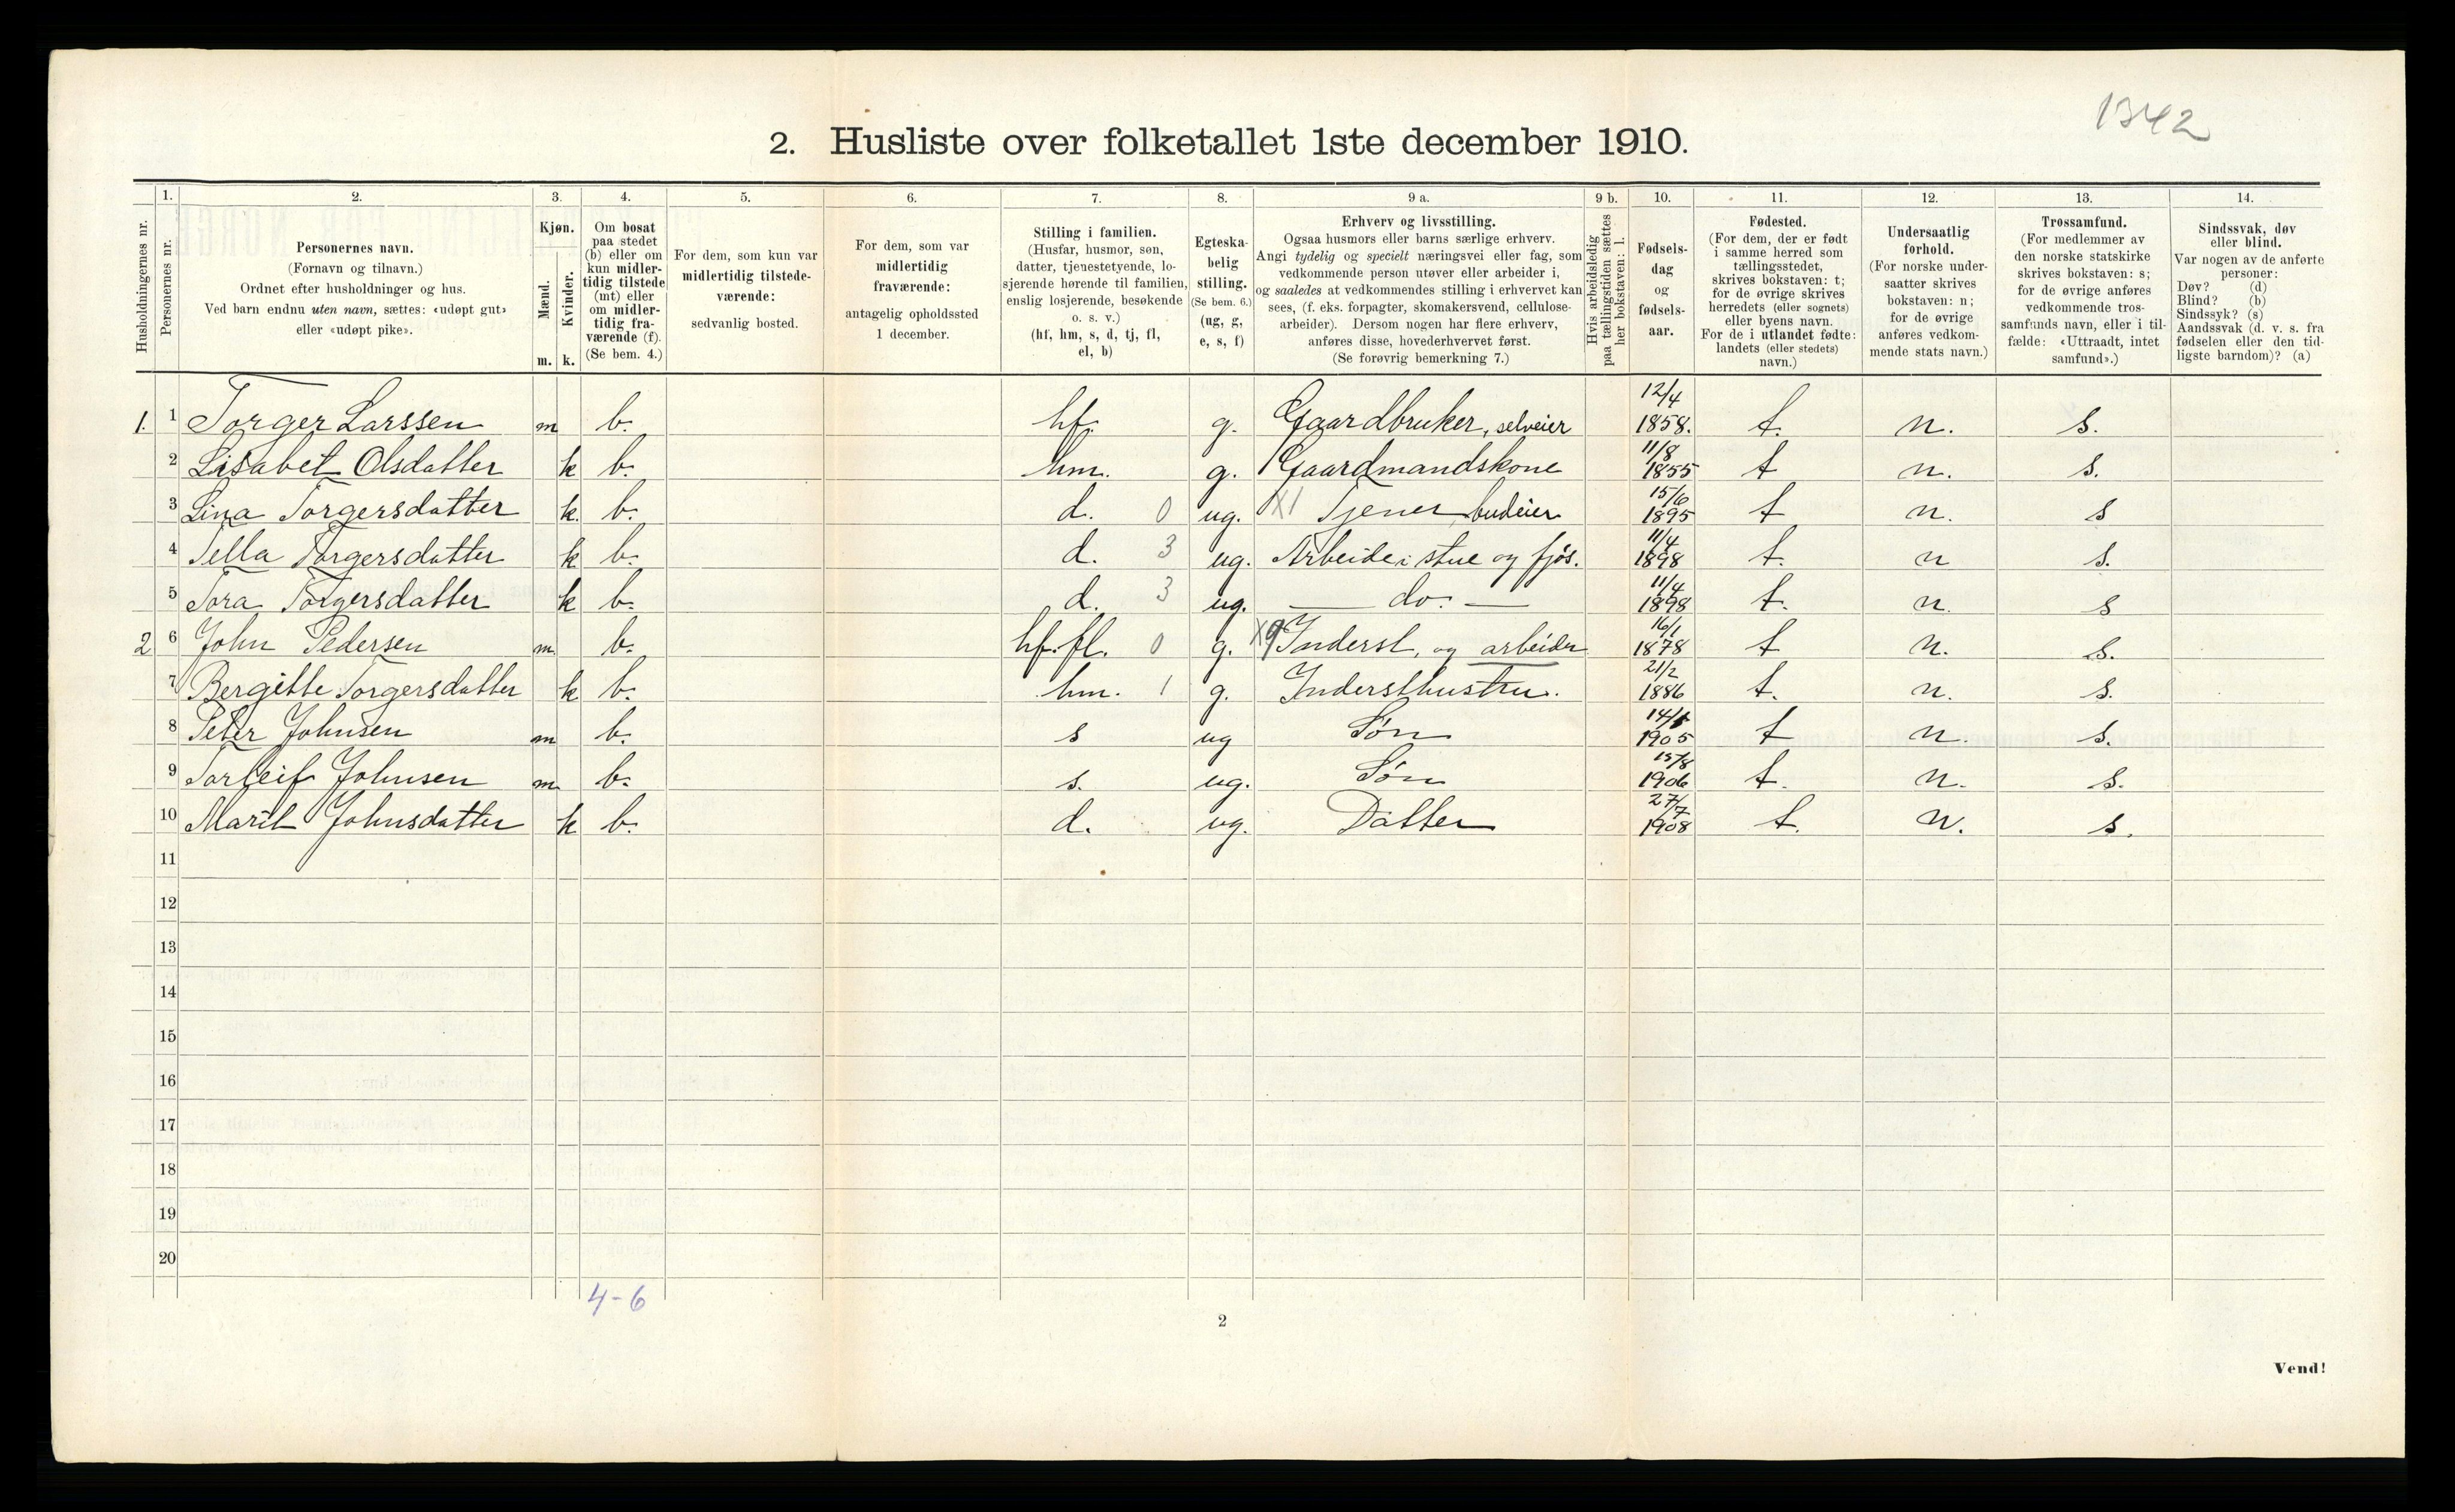 1342
2. Husliste over folketallet 1ste december 1910.
Husholdningernes nr.
1.
Personernes nr.
2.
Personernes navn.
(Fornavn og tilnavn.)
Ordnet efter husholdninger og hus.
Ved barn endnu uten navn, sættes: «udøpt gut»
eller «udøpt pike».
3.
Kjøn.
Mænd.
Kvinder.
m. k.
4.
Om bosat
paa stedet
(b) eller om
kun midler-
tidig tilstede
(mt) eller
om midler-
tidig fra-
værende (f).
(Se bem. 4.)
5.
For dem, som kun var
midlertidig tilstede-
værende:
sedvanlig bosted.
6.
For dem, som var
midlertidig
fraværende:
antagelig opholdssted
1 december.
7.
Stilling i familien.
(Husfar, husmor, søn,
datter, tjenestetyende, lo-
sjerende hørende til familien,
enslig losjerende, besøkende
o. s. v.)
(hf, hm, s, d, tj, fl,
el, b)
8.
Egteska-
belig
stilling.
(Se bem. 6.)
(ug, g,
e, s, f)
9 a.
Erhverv og livsstilling.
Ogsaa husmors eller barns særlige erhverv.
Angi tydelig og specielt næringsvei eller fag, som
vedkommende person utøver eller arbeider i,
og saaledes at vedkommendes stilling i erhvervet kan
sees, (f. eks. forpagter, skomakersvend, cellulose-
arbeider). Dersom nogen har flere erhverv,
anføres disse, hovederhvervet først.
(Se forøvrig bemerkning 7.)
9 b.
Hvis arbeidsledig
paa tællingstiden sættes
her bokstaven: l.
10.
Fødsels-
dag
og
fødsels-
aar.
11.
Fødested.
(For dem, der er født
i samme herred som
tællingsstedet,
skrives bokstaven: t;
for de øvrige skrives
herredets (eller sognets)
eller byens navn.
For de i utlandet fødte:
landets (eller stedets)
navn.)
12.
Undersaatlig
forhold.
(For norske under-
saatter skrives
bokstaven: n;
for de øvrige
anføres vedkom-
mende stats navn.)
13.
Trossamfund.
(For medlemmer av
den norske statskirke
skrives bokstaven: s;
for de øvrige anføres
vedkommende tros-
samfunds navn, eller i til-
fælde: «Uttraadt, intet
samfund».)
14.
Sindssvak, døv
eller blind.
Var nogen av de anførte
personer:
Døv? (d)
Blind? (b)
Sindssyk? (s)
Aandssvak (d. v. s. fra
fødselen eller den tid-
ligste barndom)? (a)
1. 1 Torger Larssen m b. hf. g. Gaardbruker, selveier 12/4 1858. t. n. s.
2 Lisabet Olsdatter k b. hm. g. Gaardmandskone 11/8 1855 t n. s.
3 Lina Torgersdatter k. b. d. 0 ug. X1 Tjener, budeier 15/6 1895 t n. s
4 Tella Torgersdatter k b. d. 3 ug. Arbeide i stue og fjøs. 11/4 1898 t. n s.
5 Tora Torgersdatter k b. d. 3 ug. — do. — 11/4 1898 t. n. s
2 6 John Pedersen m. b. hf. fl. 0 g. X9 Inderst, og arbeider 16/1 1878 t n. s.
7 Bergitte Torgersdatter k b. hm. 1 g. Indersthustru. 21/2 1886 t. n. s.
8 Peter Johnsen m b. s ug Søn 1905 t n. s.
9 Torleif Johnsen m. b. s. ug. Søn 1906 t. n. s.
10 Marit Johnsdatter k b. d. ug. Datter 27/7 1908 t. n. s.
11
12
13
14
15
16
17
18
19
20
4-6
2
Vend!